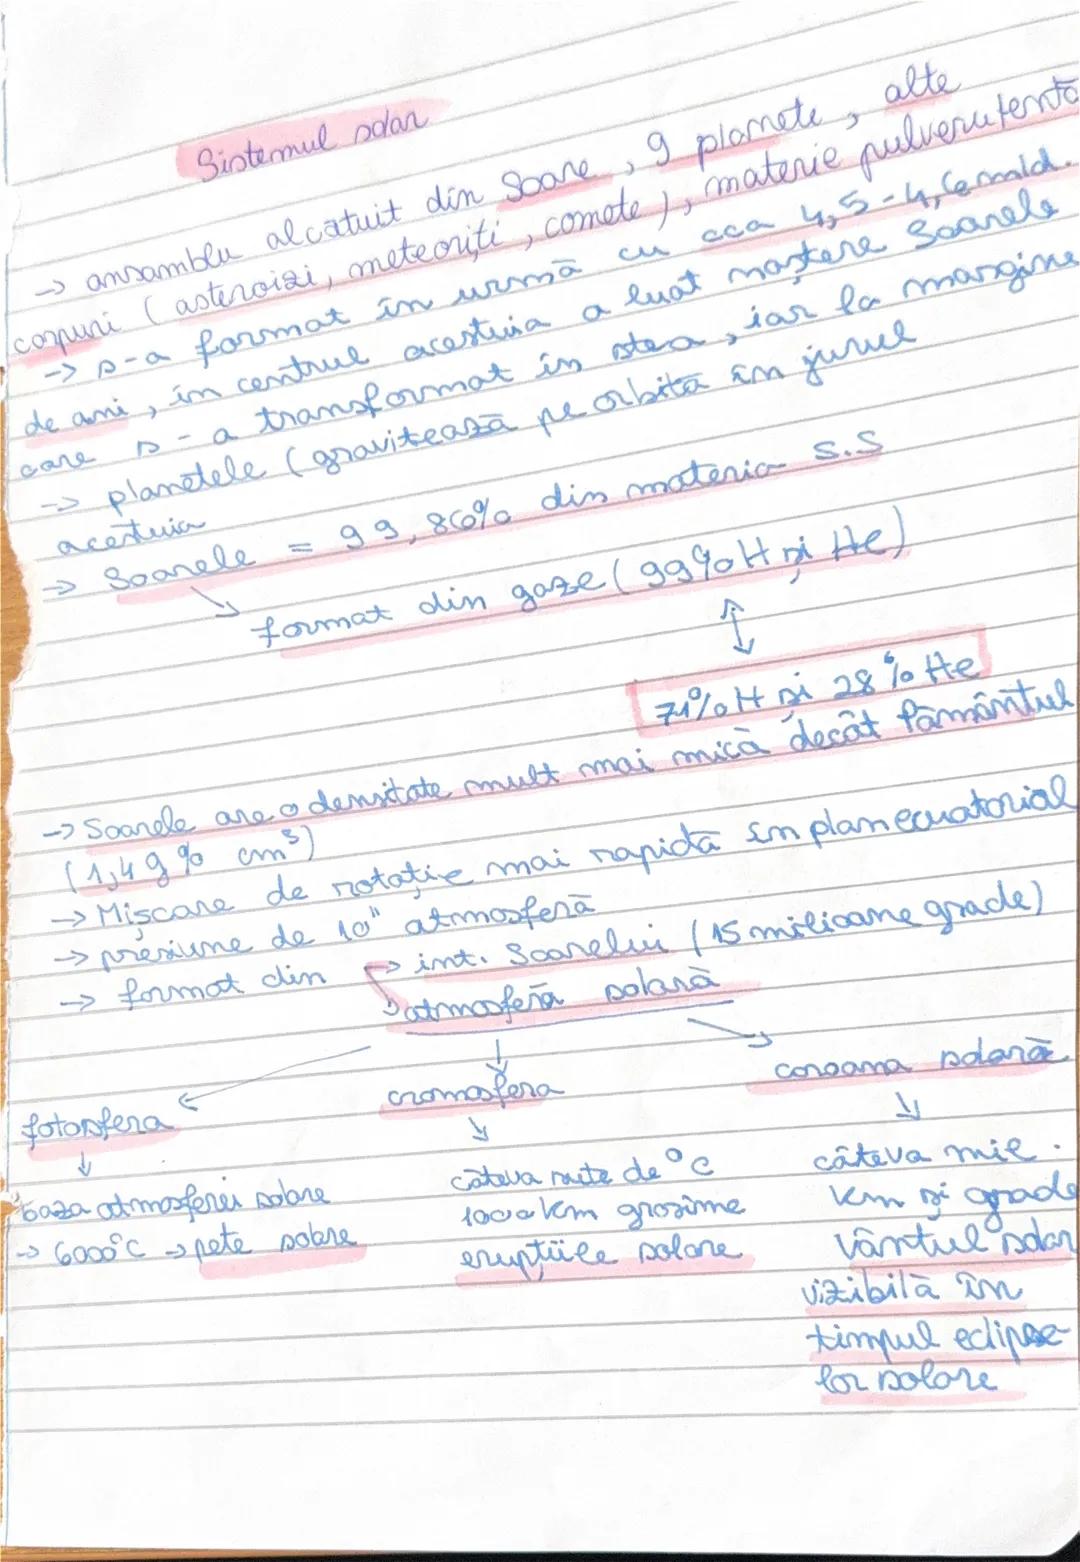 Sistemul solar
-> ansamblu alcatuit din Soare, 9 planete, alte
corpuri (asteroizi, meteoriți, comete), materie pulverutentă
-> s-a format în urmă cu cca 4,5-4,6 mld.
de ani, în centrul acestuia a luat naștere Soarele
care s-a transformat în stea, iar la margine
-> planetele (gravitează pe orbită în jurul
acestuia
-> Soarele = 99,86% din materia S.S
format din gaze (99% H și He)
71% H și 28% He
-> Soarele are o densitate mult mai mică decât Pământul
(1,49% cm³)
-> Mișcare de rotație mai rapidă în plan ecuatorial
-> presiune de 10" atmosferă
-> format din -> int. Soarelui (15 milioane grade)
atmosferă solară
fotosfera cromosfera coroana solară
baza atmosferei solare câteva mite de °C câteva mie.
-> 6000°C -> pete solare 1000 km grosime km și grade
erupțiile solare vântul solar
vizibilă în
timpul eclipse-
lor solare